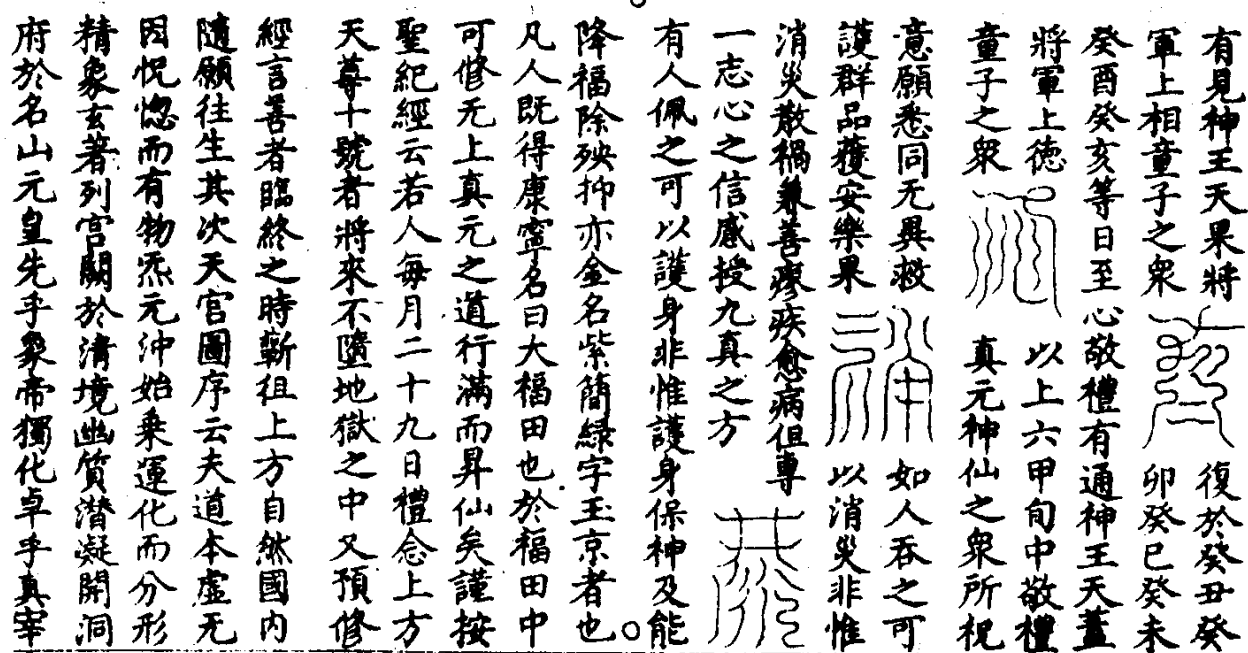 有見神王天果將復於癸丑癸
軍上相童子之衆卯癸巳癸未
癸酉癸亥等日至心敬禮有通神王天蓋
將軍上德以上六甲旬中敬禮
童子之衆真元神仙之衆所祝
意願悉同无異救如人吞之可
護群品獲安樂果以消災非惟
消災散禍兼善瘳疾愈病但專
一志心之信感授九真之方
有人佩之可以護身非惟護身保神及能
降福除殃抑亦金名紫簡綠字玉京者也
凡人既得康寧名曰大福田也於福田中
可修无上真元之道行滿而昇仙矣謹按
聖紀經云若人每月二十九日禮念上方
天尊十號者將來不墮地獄之中又預修
經言善者臨終之時蹔徂上方自然國內
隨願往生其次天宮圖序云夫道本虛无
因恍惚而有物炁元沖始乗運化而分形
精象玄著列宫闕於清境幽質潜凝開洞
府於名山元皇先乎象帝獨化卓乎真宰